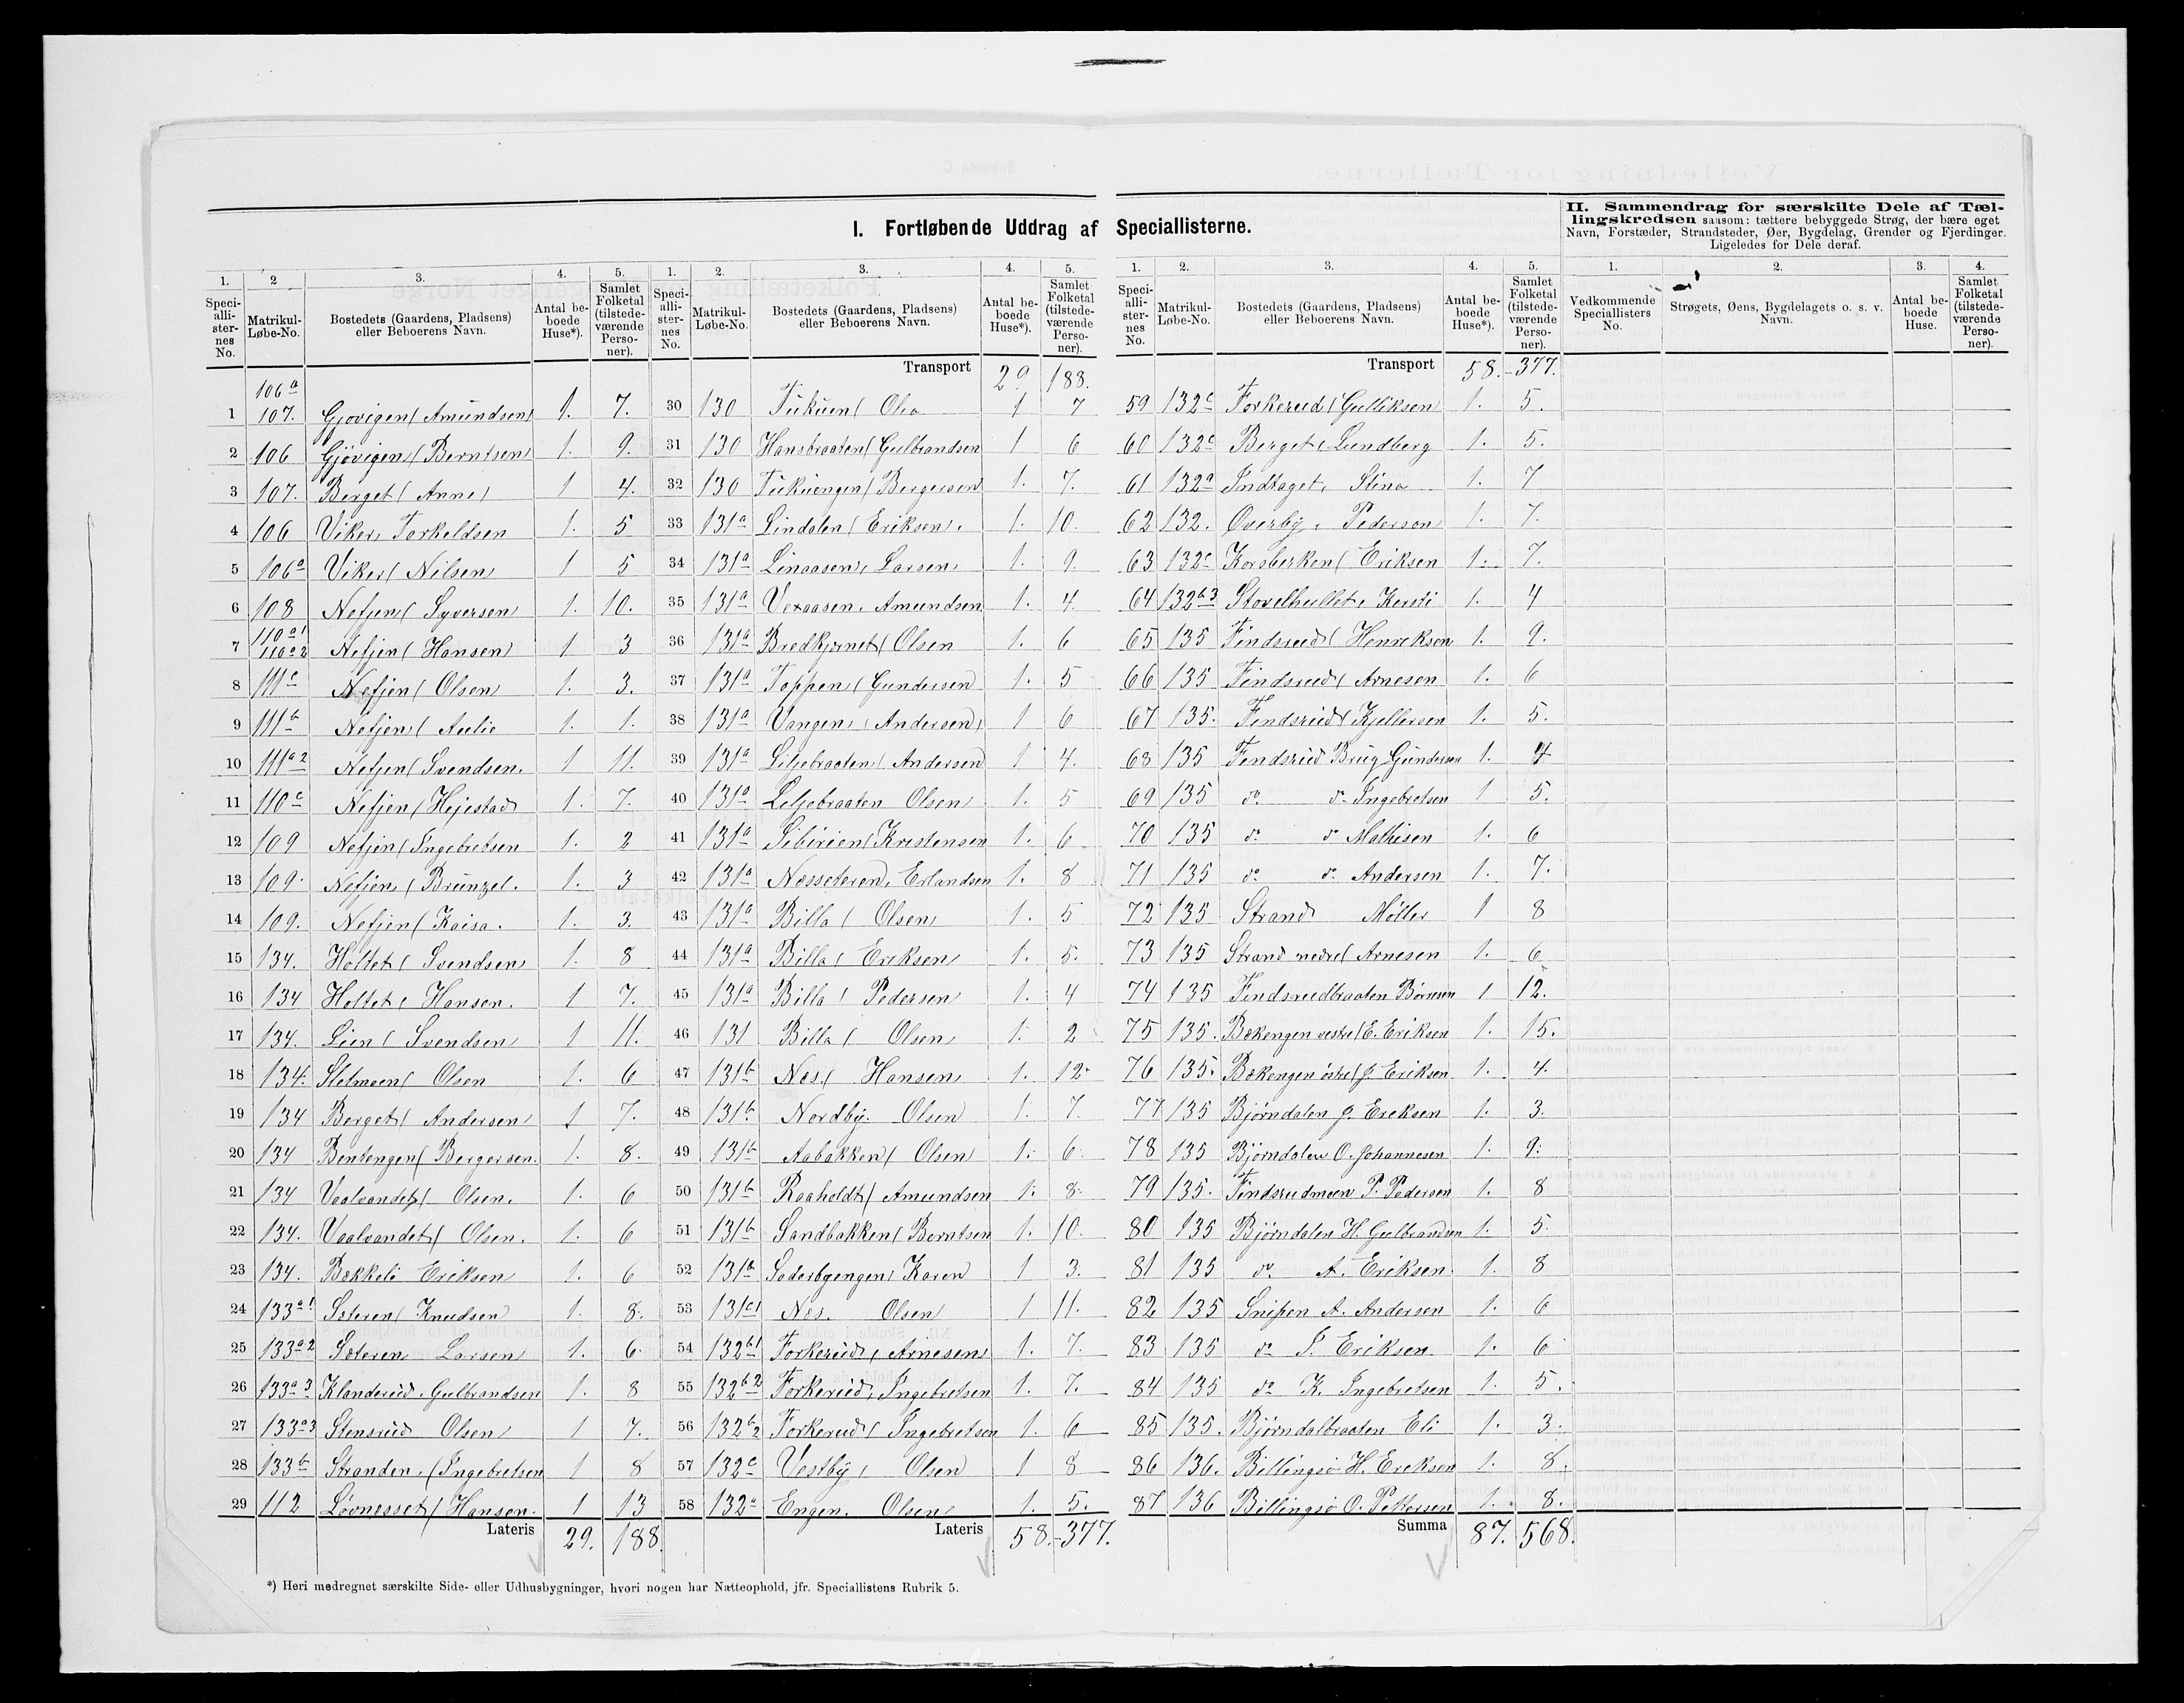 I. Fortløbende Uddrag af Speciallisterne.
II. Sammendrag for særskilte Dele af Tællingskredsen saasom: tættere bebyggede Strøg, der bære eget
Navn, Forstæder, Strandsteder, Øer, Bygdelag, Grender og Fjerdinger.
Ligeledes for Dele deraf.
1. 2 3. 4. 5.
Speciallisternes No. Matrikul-Løbe-No. Bostedets (Gaardens, Pladsens) eller Beboerens Navn. Antal beboede Huse*). Samlet Folketal (tilstedeværende Personer).
1 106a 107. Gjøvigen (Amundsen) 1. 7.
2 106 Gjøvigen (Berntsen) 1. 9.
3 107. Berget (Anne) 1 4.
4 106 Viker, Torkeldsen 1. 5
5 106a Viker (Nilsen) 1 5
6 108 Nefjen (Syversen) 1. 10.
7 110a1 110a2 Nefjen (Hansen) 1 3
8 111c Nefjen (Olsen) 1. 3.
9 111b Nefjen (Aulie 1. 1.
10 111a2 Nefjen (Svendsen. 1 11.
11 110c Nefjen (Hejestad) 1. 7.
12 109 Nefjen (Ingebretsen 1. 2
13 109. Nefjen (Brünzel. 1. 3
14 109. Nefjen (Kaisa. 1. 3.
15 134. Holtet (Svendsen) 1. 8
16 134 Holtet (Hansen. 1 7.
17 134. Lien (Svendsen 1 11.
18 134. Sletmoen (Olsen 1. 6
19 134 Berget (Andersen) 1 7.
20 134 Bentengen (Bergersen. 1. 8.
21 134 Vaalvandet (Olsen. 1. 6
22 134. Vaalvandet (Olsen. 1. 6
23 134. Bækkeli Eriksen 1. 6
24 133a1 Sæteren (Knudsen) 1. 8.
25 133a2 Sæteren Larsen 1. 6
26 133a3 Klanderud. Gulbrandsen 1. 8
27 133a3 Stensrud Olsen 1 7.
28 133b Stranden. (Ingebretsen 1 8
29 112 Løvnesset (Hansen. 1 13
Lateris 29. 188.
1. 2. 3. 4. 5.
Speciallisternes No. Matrikul-Løbe-No. Bostedets (Gaardens, Pladsens) eller Beboerens Navn. Antal beboede Huse*). Samlet Folketal (tilstedeværende Personer).
Transport 29. 188.
30 130 1 7
31 130 Hansbraaten (Gulbrandsen 1 6
32 130 (Bergersen 1. 7.
33 131a Lindalen (Eriksen. 1. 10.
34 131a Linaasen, Larsen 1. 9.
35 131a Amundsen 1. 4.
36 131a Bredkjernet (Olsen 1. 6
37 131a Toppen (Gundersen) 1. 5
38 131a Vangen, (Andersen) 1 6
39 131a Liljebraaten (Andersen) 1 4.
40 131a Liljebraaten Olsen 1. 5
41 131a Sibirien (Kristensen 1. 6
42 131a Næsseteren, Erlandsen 1. 8
43 131a Billa (Olsen) 1. 5
44 131a Billa (Eriksen) 1. 5.
45 131a Billa (Pedersen 1. 4
46 131 Billa (Olsen 1. 2
47 131b Næs, Hansen 1. 12.
48 131b Nordby. Olsen 1. 7
49 131b Aabakken (Olsen 1. 6
50 131b Raaholdt (Amundsen 1. 8
51 131b Sandbakken (Berntsen 1. 10.
52 131b Karen 1 3.
53 131c1 Næs. Olsen 1 11.
54 132b1 Forkerud, Arnesen 1. 7.
55 132b2 Forkerud, Ingebretsen 1. 7.
56 132b2 Forkerud (Ingebretsen 1. 6
57 132c Vestby, Olsen 1 8
58 132c Engen. Olsen 1. 5.
Lateris 58. 377.
1. 2. 3. 4. 5.
Speciallisternes No. Matrikul-Løbe-No. Bostedets (Gaardens, Pladsens) eller Beboerens Navn. Antal beboede Huse*). Samlet Folketal (tilstedeværende Personer).
Transport 58. 377.
59 132c Forkerud (Gulliksen 1. 5.
60 132c Berget, Lundberg 1. 5.
61 132a Indtaget, Stina 1. 7
62 132. Overby, Pederson 1. 7.
63 132c Korsberken (Eriksen 1. 7.
64 132b3 Stovelhullet, Kersti 1. 4
65 135 Findsrud (Henriksen 1. 9.
66 135 Findsrud, Arnesen 1. 6
67 135. Findsrud (Kjellersen 1. 5.
68 135 Findsrud Brug Gundersen 1. 4
69 135 do. do. Ingebretsen 1 5.
70 135 do do Mathisen 1. 6
71 135 do do. Andersen 1. 7.
72 135 Strand Møller 1 8
73 135 Strand nedre (Arnesen 1. 6
74 135 Findsrudbraaten Børresen 1 12.
75 135. Bækengen vestre (E. Eriksen 1. 15.
76 135. Bækengen østre (J. Eriksen. 1. 4.
77 135 Bjørndalen J. Ereksen 1. 3.
78 135 Bjørndalen O. Johannesen 1. 9.
79 135. Findsrudmoen P. Pedersen 1. 8
80 135 Bjørndalen H. Gulbrandsen 1. 5.
81 135 do. A. Eriksen. 1. 8
82 135 Snipen A. Andersen 1. 6
83 135 do P. Eriksen. 1. 6
84 135 do K. Ingebretsen 1. 5.
85 135. Bjørndalbraaten Eli 1. 3.
86 136. Billingsø H. Ereksen 1. 8.
87 136 Billingsø O. Pettersen 1. 8.
Summa 87. 568.
1. 2. 3. 4.
Vedkommende Speciallisters No. Strøgets, Øens, Bygdelagets o. s. v. Navn. Antal beboede Huse. Samlet Folketal (tilstedeværende Personer).
*) Heri medregnet særskilte Side- eller Udhusbygninger, hvori nogen har Natteophold, jfr. Speciallistens Rubrik 5.